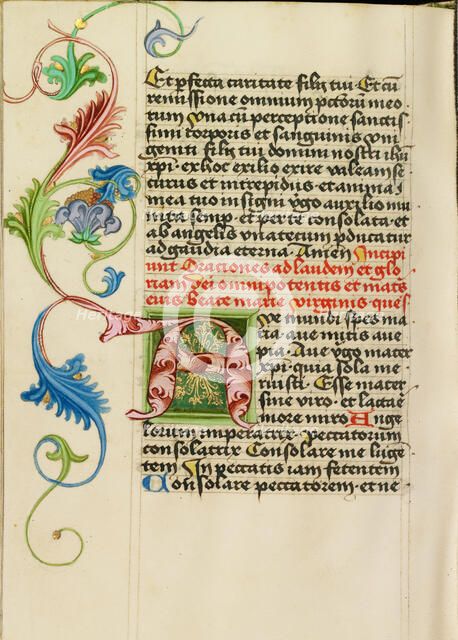 Et pfecta caritate filij tui Et cū
remissione omnium pctorum meo
rum Vna cū perceptione sanctis
simi corporis et sanguinis vni
geniti filij tui domini nostri ihū
xpi · ex hoc exilio exire valeam se
curus et intrepidus · et anima
mea tuo insigni vgo auxilio mu
nita semp · et per te consolata · et
ab angelis vnatecum pducatur
ad gaudia eterna · Amen Incipi
unt Orationes ad laudem et glo
riam dei omnipotentis et matris
eius beate marie virginis
Ave mundi spes ma
ria · aue mitis aue
pia · Aue vgo mater
xpi · quia sola me
ruisti · Esse mater
sine viro · et lactae
more miro Ange
lorum imperatrix · peccatorum
consolatrix Consolare me luge
tem In peccatis iam fetentem
Consolare peccatorem · et ne